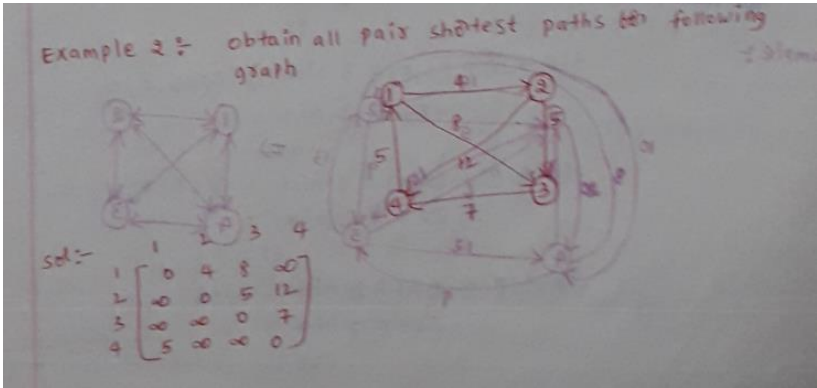 Example 2 :- obtain all pair shortest paths for following
graph
1 4 2
8 5
5 12
4 7 3
sol:- 1 2 3 4
1 0 4 8 ∞
2 ∞ 0 5 12
3 ∞ ∞ 0 7
4 5 ∞ ∞ 0